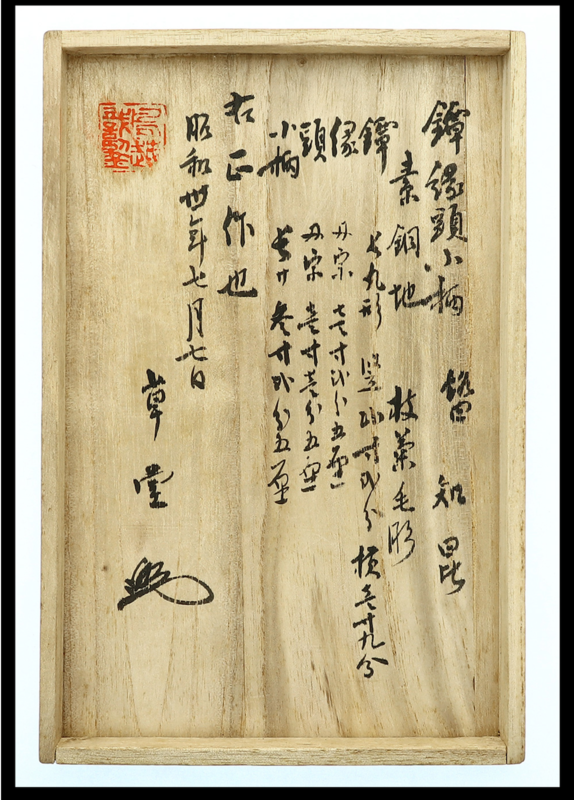 鐔縁頭小柄 銘 知昆
素銅地 枝菊毛彫
鐔 長丸形 竪弐寸弐分 横壱寸九分
縁 壱寸弐分五厘
頭 壱寸壱分五厘
小柄 長サ 参寸弐分五厘
右正作也
昭和 年七月七日
堂